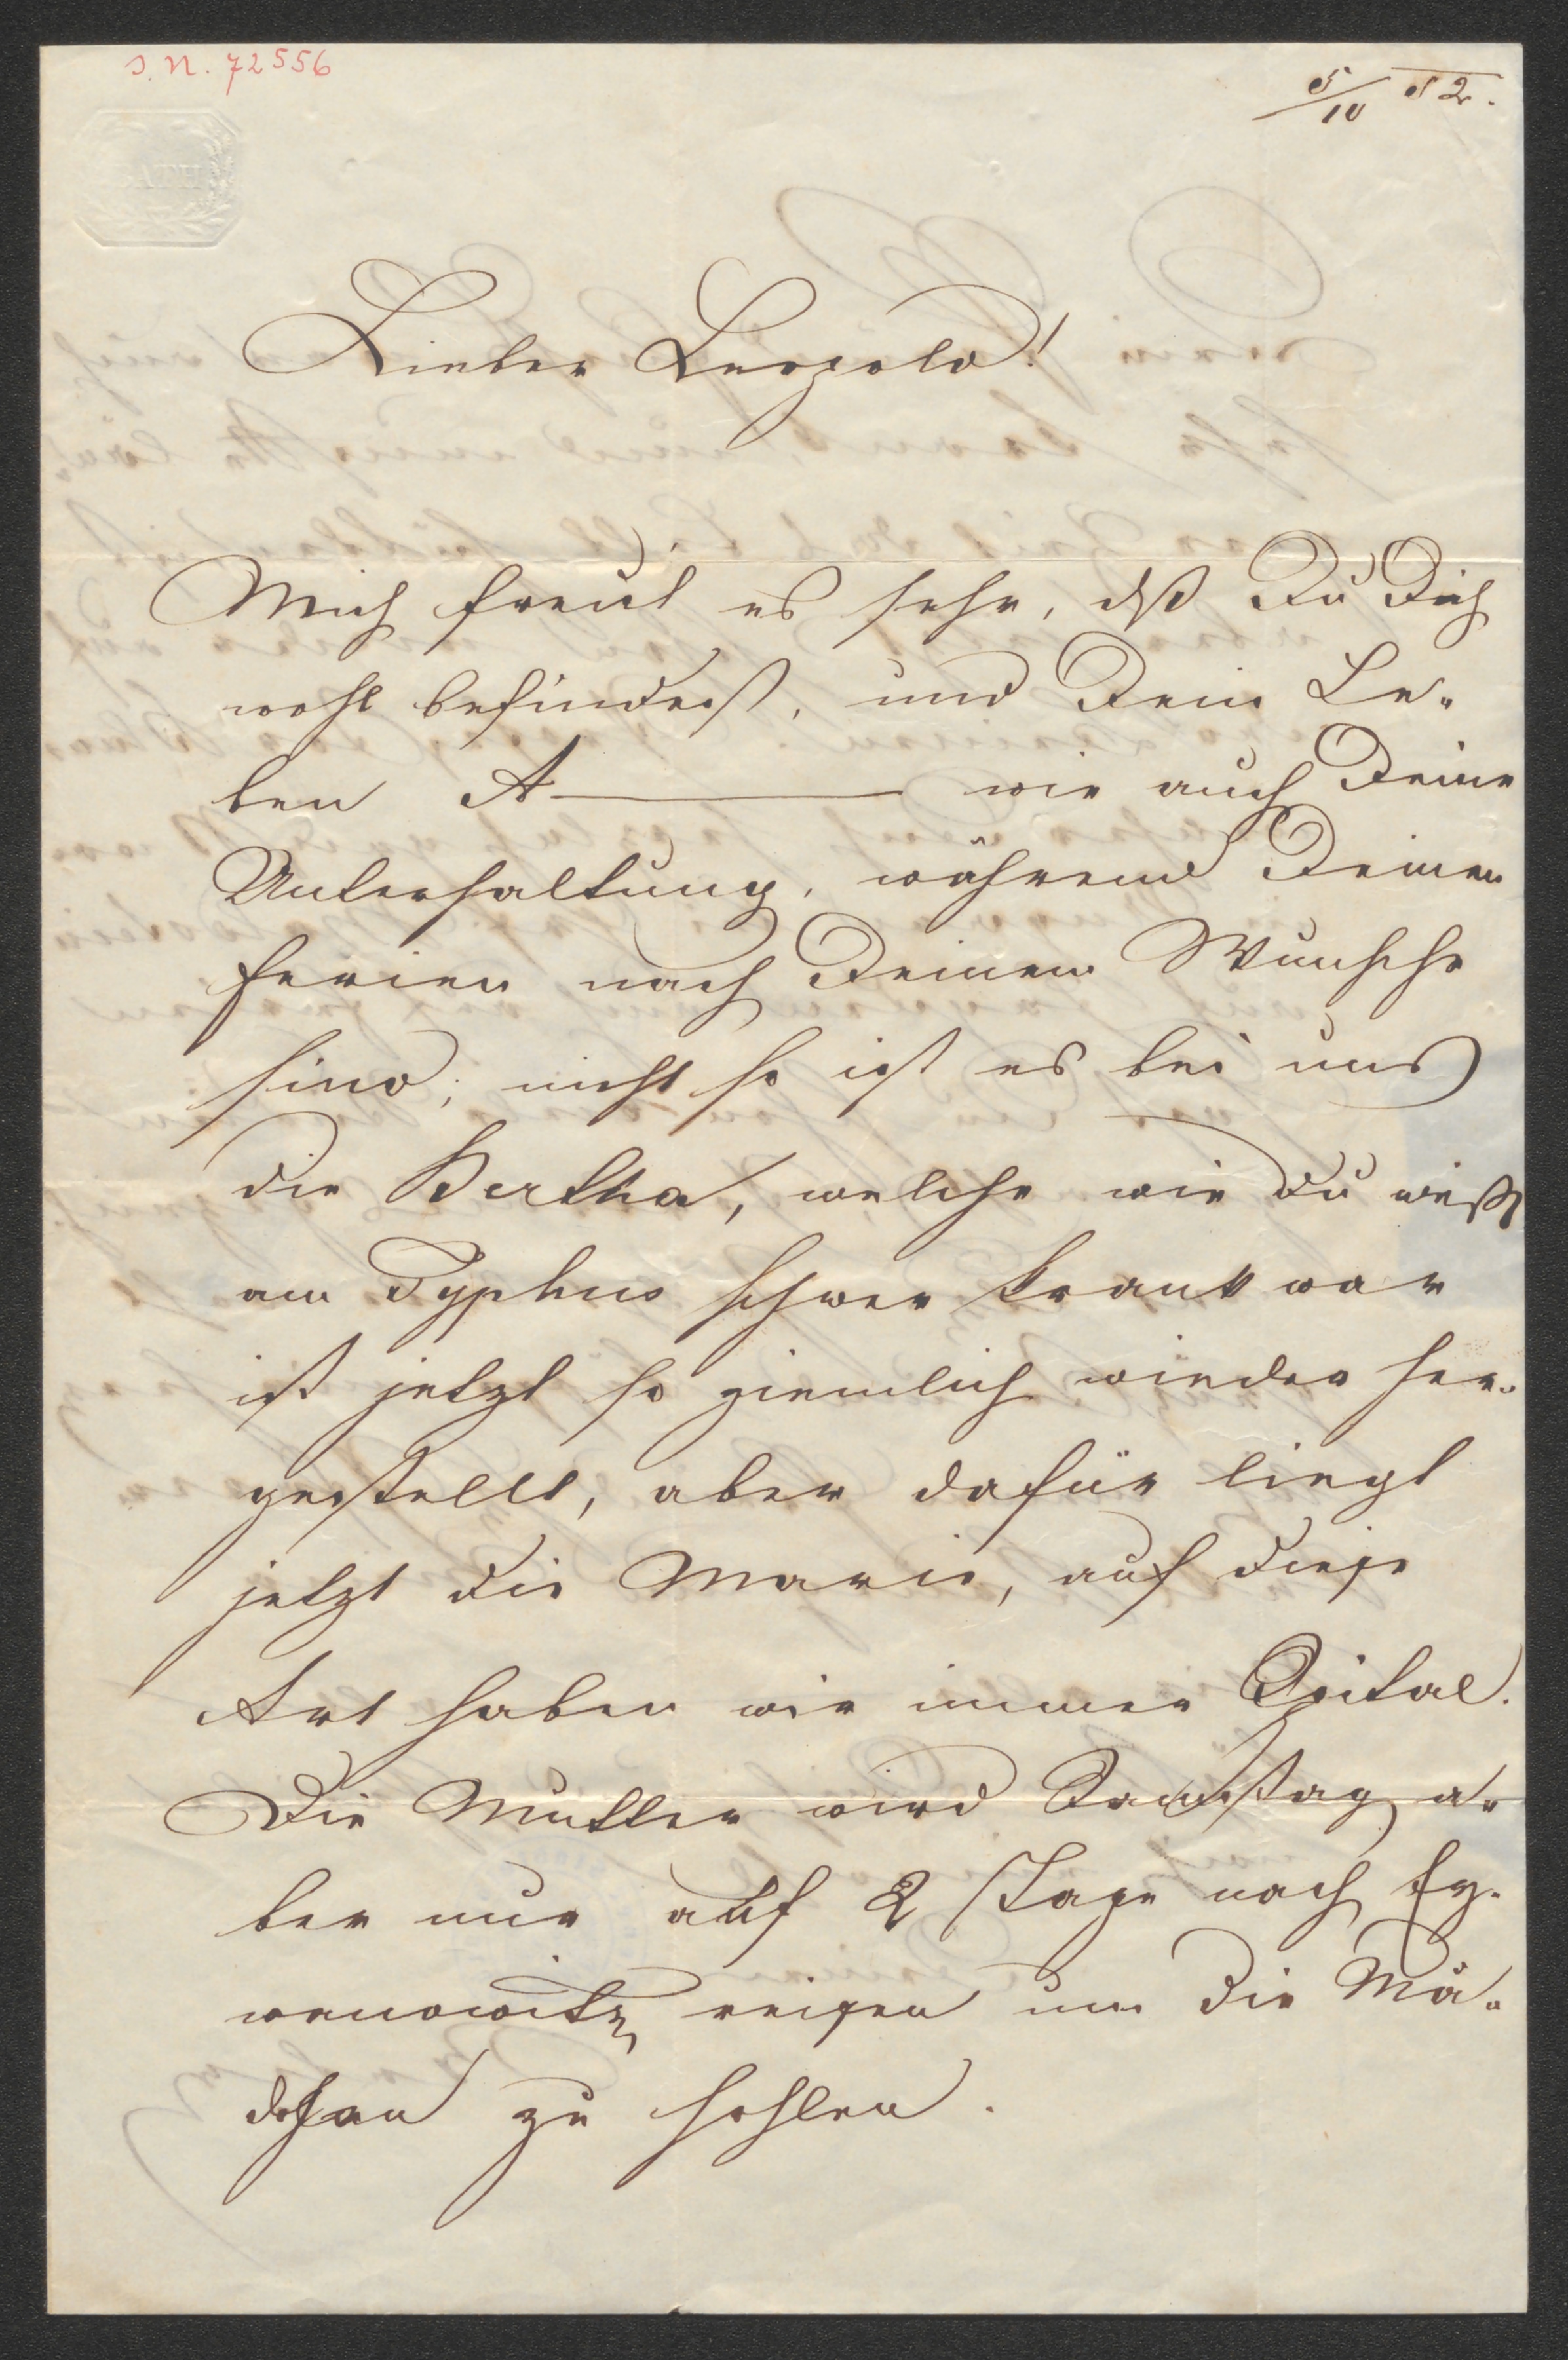 J. N. 72556
5/10 52.
BATH
Lieber Leopold!
Mich freut es sehr, dß Du Dich
wohl befindest, und Dein Le-
ben A——— wie auch Deine
Unterhaltung, während Deinen
Ferien nach Deinem Wunsche
sind; nicht so ist es bei uns
die Bertha, welche wie Du weißt
am Typhus schwer krank war
ist jetzt so ziemlich wieder her-
gestellt, aber dafür liegt
jetzt die Marie, auf diese
Art haben wir immer Spital.
Die Mutter wird Samstag a-
ber nur auf 2 Tage nach Ey-
wanowitz reisen um die Mä-
dchen zu hohlen.